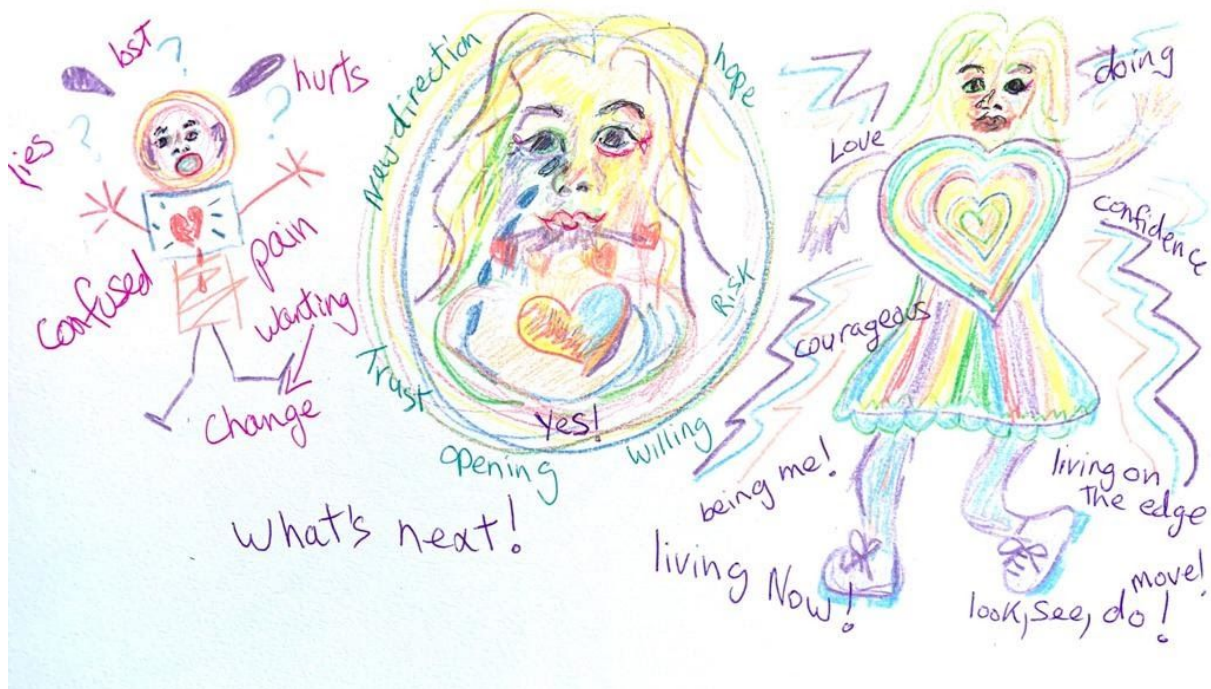 lost
hurts
lies
confused
pain
wanting
change
new direction
hope
Risk
Trust
opening
willing
yes!
What's next!
doing
Love
confidence
courageous
being me!
living on
the edge
living Now!
move!
look, see, do!